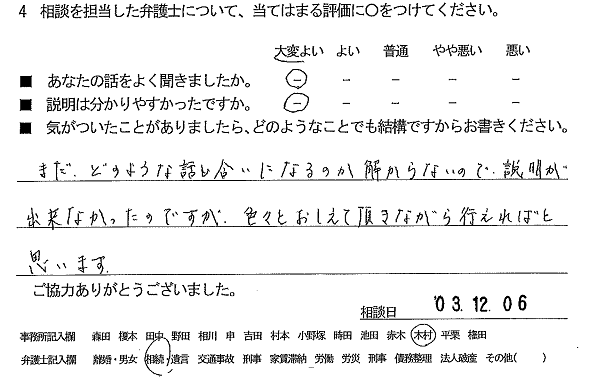 4 相談を担当した弁護士について、当てはまる評価に○をつけてください。
大変よい よい 普通 やや悪い 悪い
■ あなたの話をよく聞きましたか。 － － － － －
■ 説明は分かりやすかったですか。 － － － － －
■ 気がついたことがありましたら、どのようなことでも結構ですからお書きください。
まだ、どのような話し合いになるのか解からないので、説明が
出来なかったのですが、色々とおしえて頂きながら行えればと
思います。
ご協力ありがとうございました。
相談日 '03.12.06
事務所記入欄 森田 榎木 田中 野田 相川 申 吉田 村本 小野塚 時田 池田 赤木 木村 平栗 権田
弁護士記入欄 離婚・男女 相続・遺言 交通事故 刑事 家賃滞納 労働 労災 刑事 債務整理 法人破産 その他( )